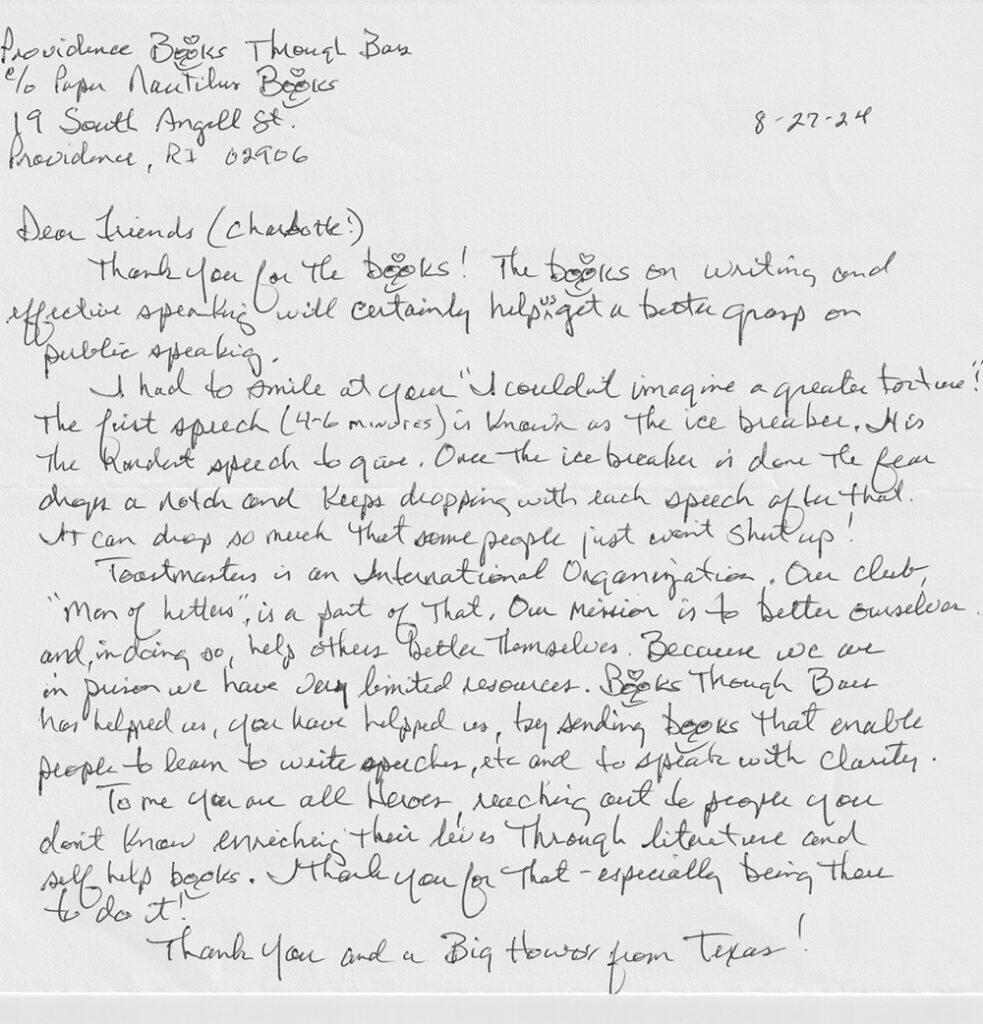 Providence Books Through Bars
c/o Paper Nautilus Books
19 South Angell St.
8-27-24
Providence, RI 02906
Dear Friends (Charlotte!)
Thank you for the books! The books on writing and
effective speaking will certainly help us get a better grasp on
public speaking.
I had to smile at your "I couldn't imagine a greater torture"!
The first speech (4-6 minutes) is known as the ice breaker. It is
the hardest speech to give. Once the ice breaker is done the fear
drops a notch and keeps dropping with each speech after that.
It can drop so much that some people just won't shut up!
Toastmasters is an International Organization. Our club,
"Men of Letters", is a part of that. Our mission is to better ourselves
and, in doing so, help others better themselves. Because we are
in prison we have very limited resources. Books Through Bars
has helped us, you have helped us, by sending books that enable
people to learn to write speeches, etc and to speak with clarity.
To me you are all heroes, reaching out to people you
don't know enriching their lives through literature and
self help books. I thank you for that - especially being there
to do it!
Thank you and a Big from Texas!